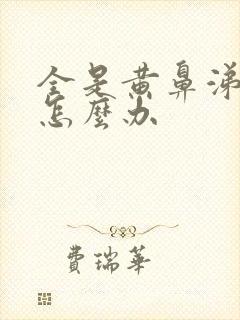 全是黄鼻涕
怎麼办
費瑞華